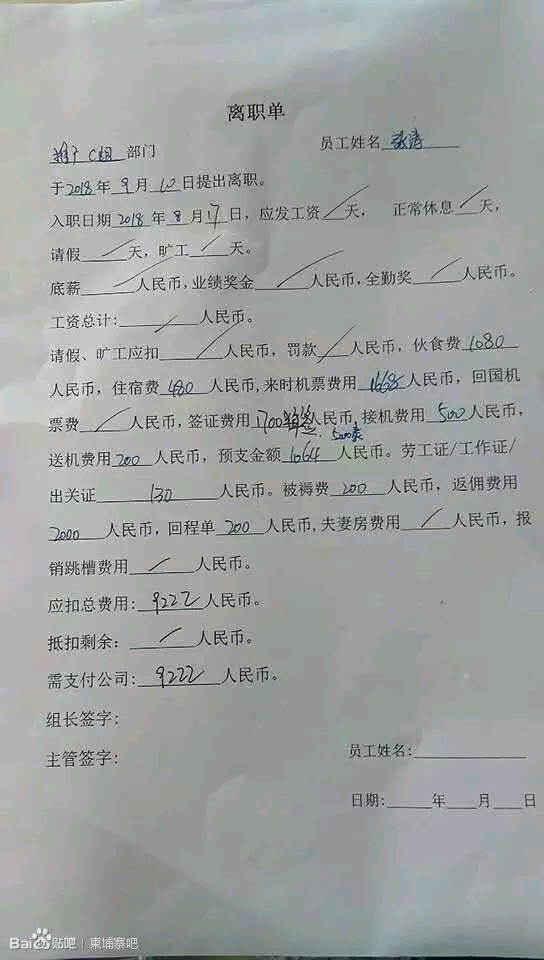 离职单
推广C组 部门 员工姓名 张涛
于2018年9月10日提出离职。
入职日期2018年8月17日，应发工资／天， 正常休息／天，
请假／天，旷工／天。
底薪／人民币，业绩奖金／人民币，全勤奖／人民币。
工资总计：／人民币。
请假、旷工应扣／人民币，罚款／人民币，伙食费1080
人民币，住宿费480人民币，来时机票费用1668人民币，回国机
票费／人民币，签证费用1700 人民币，接机费用500人民币，
送机费用200人民币，预支金额1064人民币。劳工证/工作证/
出关证130人民币。被褥费200人民币，返佣费用
2000人民币，回程单200人民币，夫妻房费用／人民币，报
销跳槽费用／人民币。
应扣总费用：9222人民币。
抵扣剩余：／人民币。
需支付公司：9222人民币。
组长签字：
主管签字：
员工姓名：
日期：____年___月___日
Bai贴吧 | 柬埔寨吧